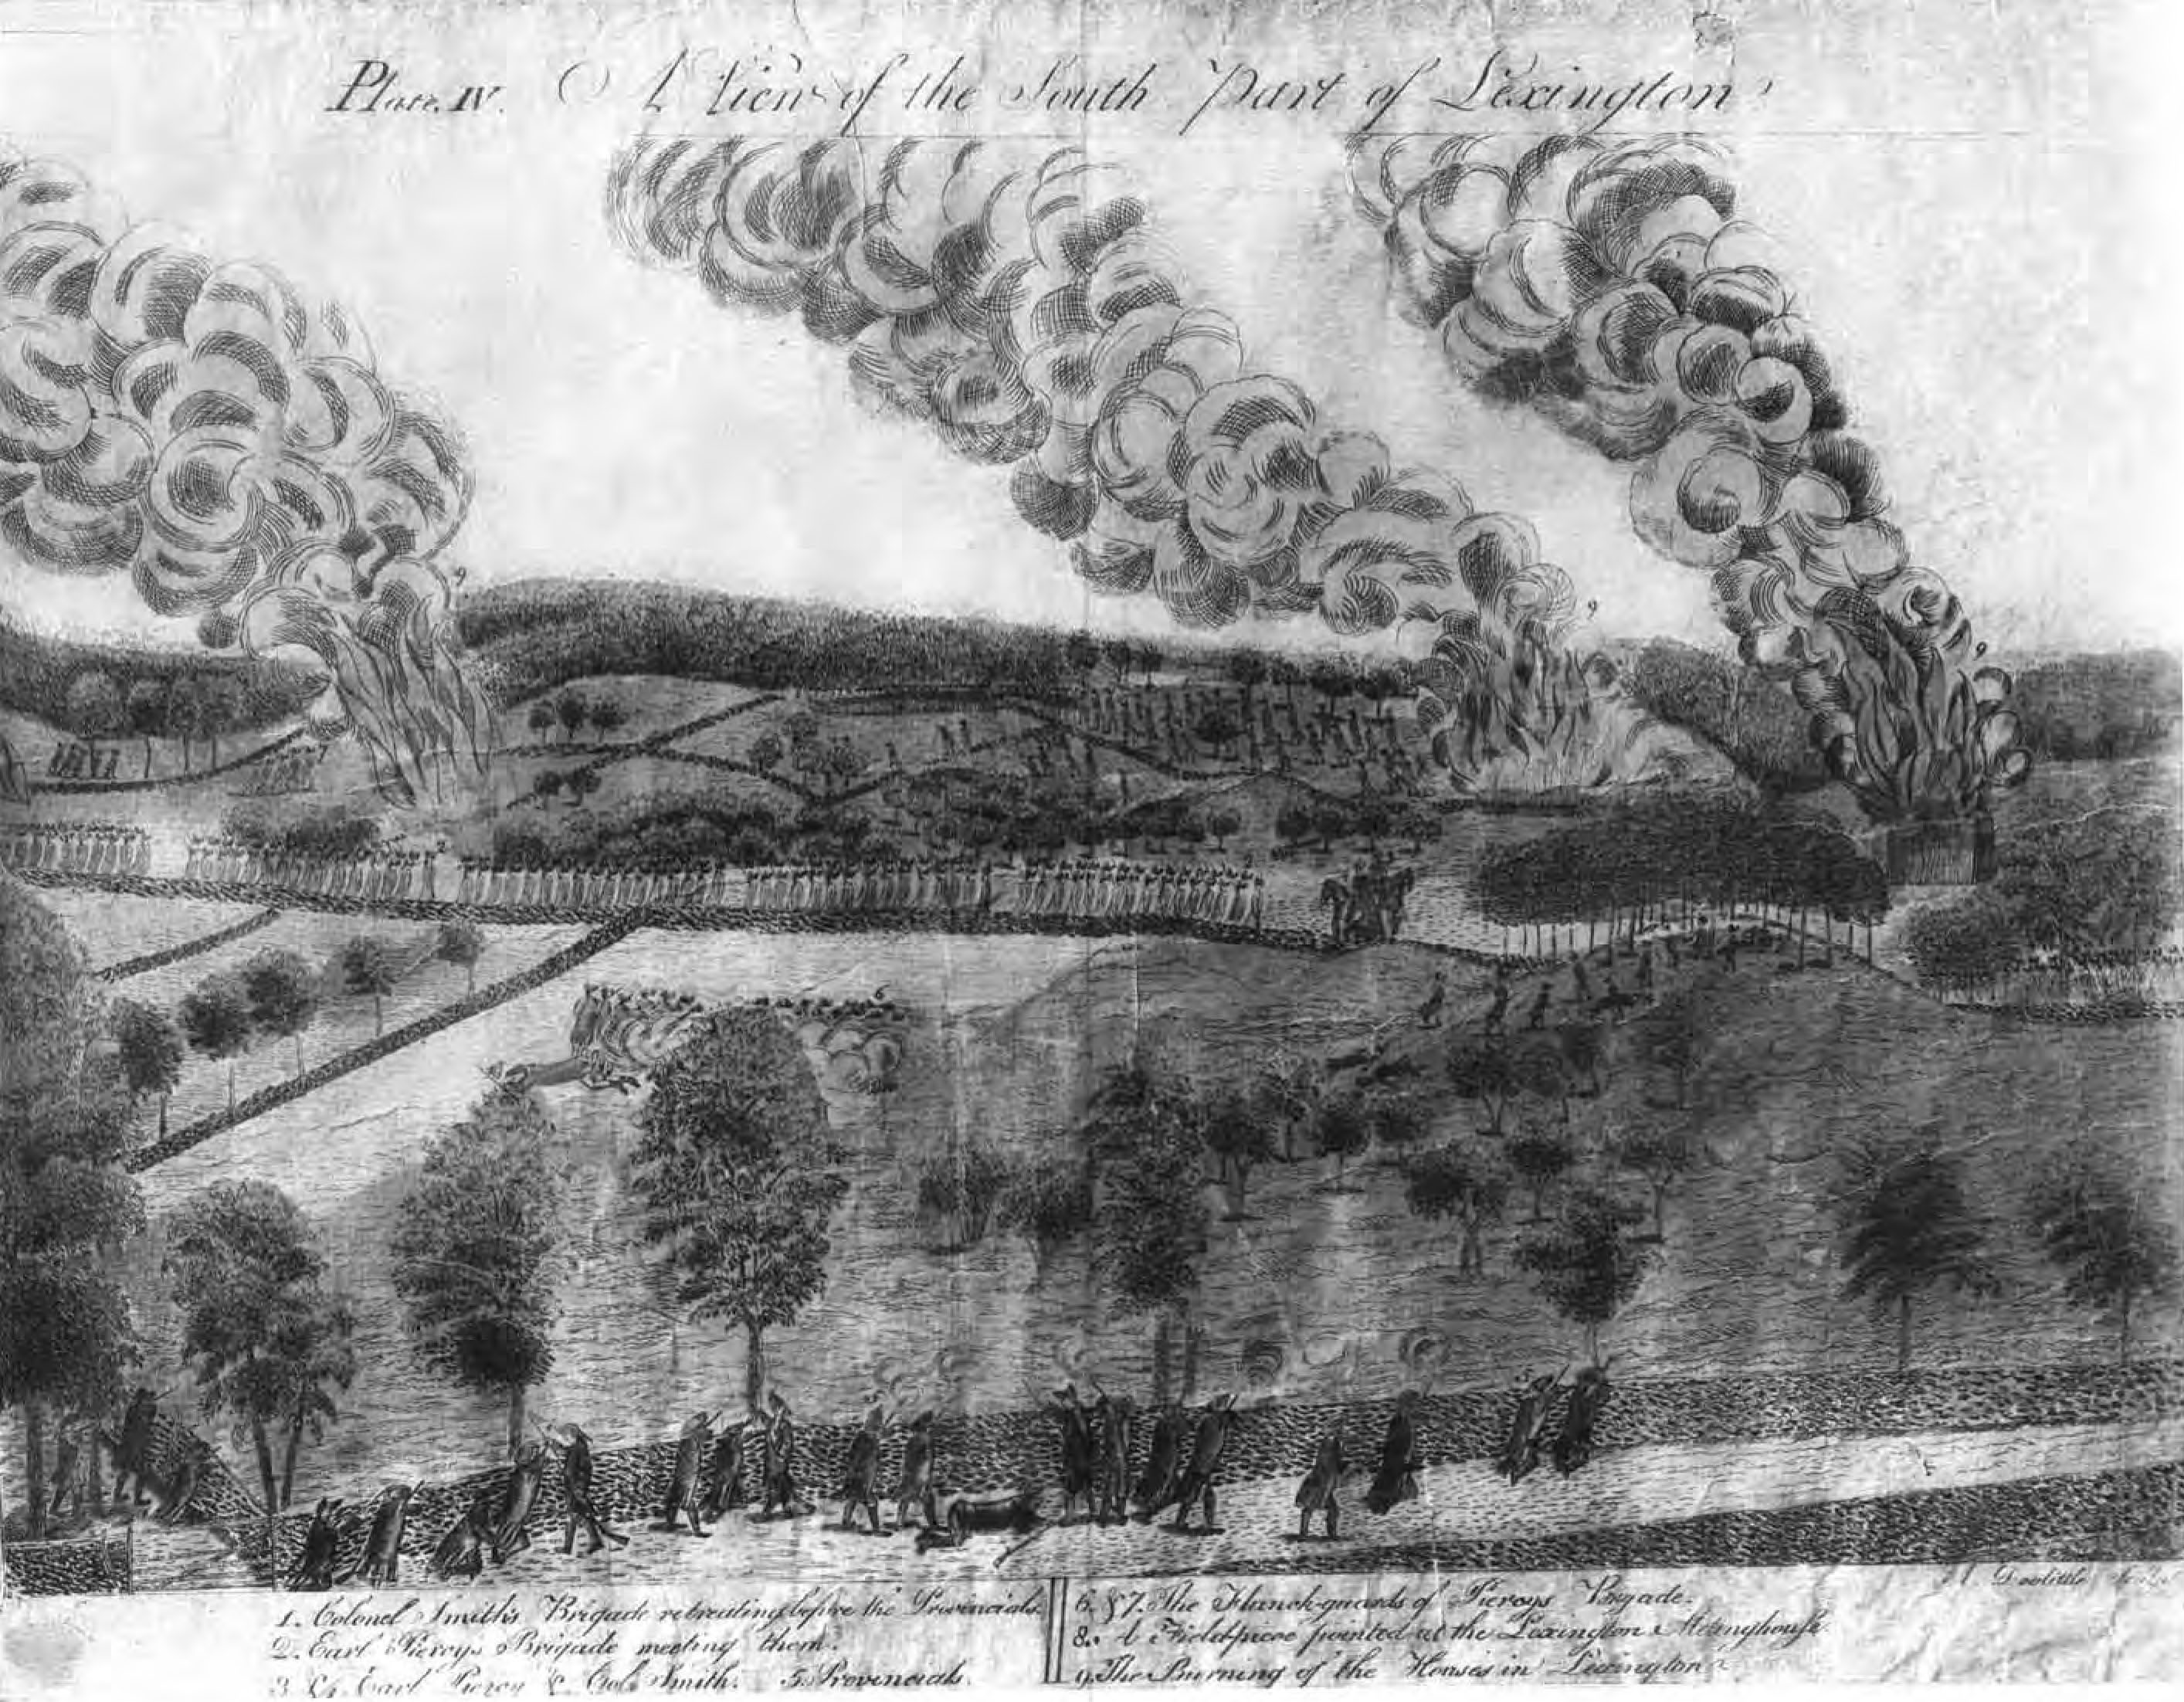 Plate. IV. A View of the South Part of Lexington.
9
9
9
2
6
A. Doolittle Sculp.
1. Colonel Smith's Brigade retreating before the Provincials.
2. Earl Piercys Brigade meeting them.
3 & 4. Earl Piercy & Col. Smith. 5. Provincials.
6. & 7. The Flanck-guards of Piercys Brigade.
8. A Fieldpiece pointed at the Lexington Meetinghouse.
9. The Burning of the Houses in Lexington.